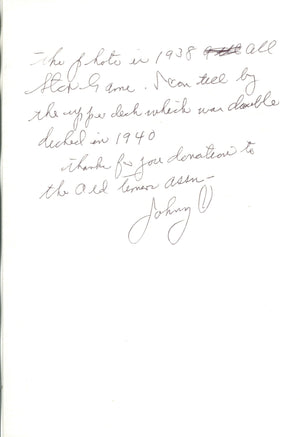 The photo is 1938 all
Star Game. I can tell by
the upper deck which was double
decked in 1940
thanks for you donation to
the old timer assn-
Johnny V